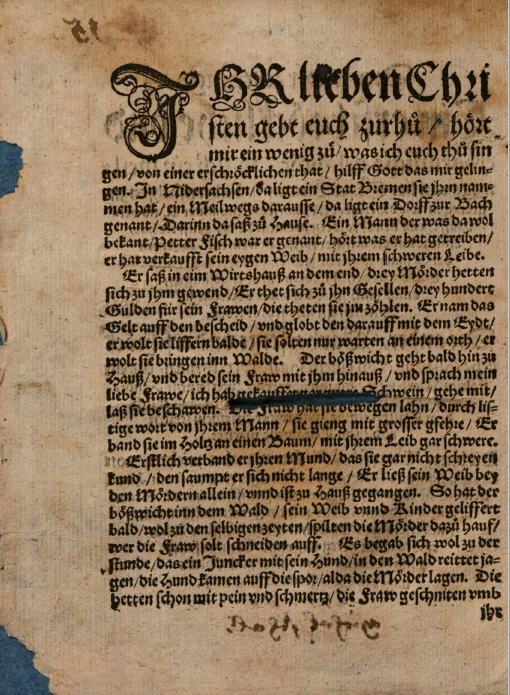 IHR lieben Chri
sten gebt euch zurhů / hört
mir ein wenig zů / was ich euch thů sin
gen / von einer erschröcklichen that / hilff Gott das mir gelin-
gen. In Nidersachsen / da ligt ein Stat Bremen sie jhrn nam-
men hat / ein Meil wegs darausse / da ligt ein Dorff zur Bach
genant / Darinn da saß zů Hause. Ein Mann der was da wol
bekant / Petter Fisch war er genant / hört was er hat getrieben /
er hat verkaufft sein eygen Weib / mit jhrem schweren Leibe.
Er saß in eim Wirtshauß an dem end / drey Mörder hetten
sich zu jhm gewend / Er thet sich zů jhn Gesellen / drey hundert
Gulden für sein Frawen / die theten sie jm zöhlen. Er nam das
Gelt auff den bescheid / vnd globt den darauff mit dem Eydt /
er wolt sie liffern balde / sie solten nur warten an einem orth / er
wolt sie bringen inn Walde. Der bößwicht geht bald hin zů
Hauß / vnd bered sein Fraw mit jhm hinauß / vnd sprach mein
liebe Frawe / ich hab gekauffet Schwein / gehe mit /
laß sie beschawen. Die Fraw hat sie bewegen lahn / durch lis-
tige wort von jhrem Mann / sie gieng mit grosser gfehre / Er
band sie im Holtz an einen Baum / mit jhrem Leib gar schwere.
Erstlich verband er jhren Mund / das sie gar nicht schreyen
kund / den saumpt er sich nicht lange / Er ließ sein Weib bey
den Mördern allein / vnnd ist zů Hauß gegangen. So hat der
bößwicht inn dem Wald / sein Weib vnnd Kinder geliffert
bald / wol zů den selbigen zeyten / spilten die Mörder dazů hauf /
wer die Fraw solt schneiden auff. Es begab sich wol zů der
stunde / das ein Juncker mit sein Hund / in den Wald reittet ja-
gen / die Hund kamen auff die spor / alda die Mörder lagen. Die
hetten schon mit pein vnd schmertz / die Fraw geschniten vmb
ihr